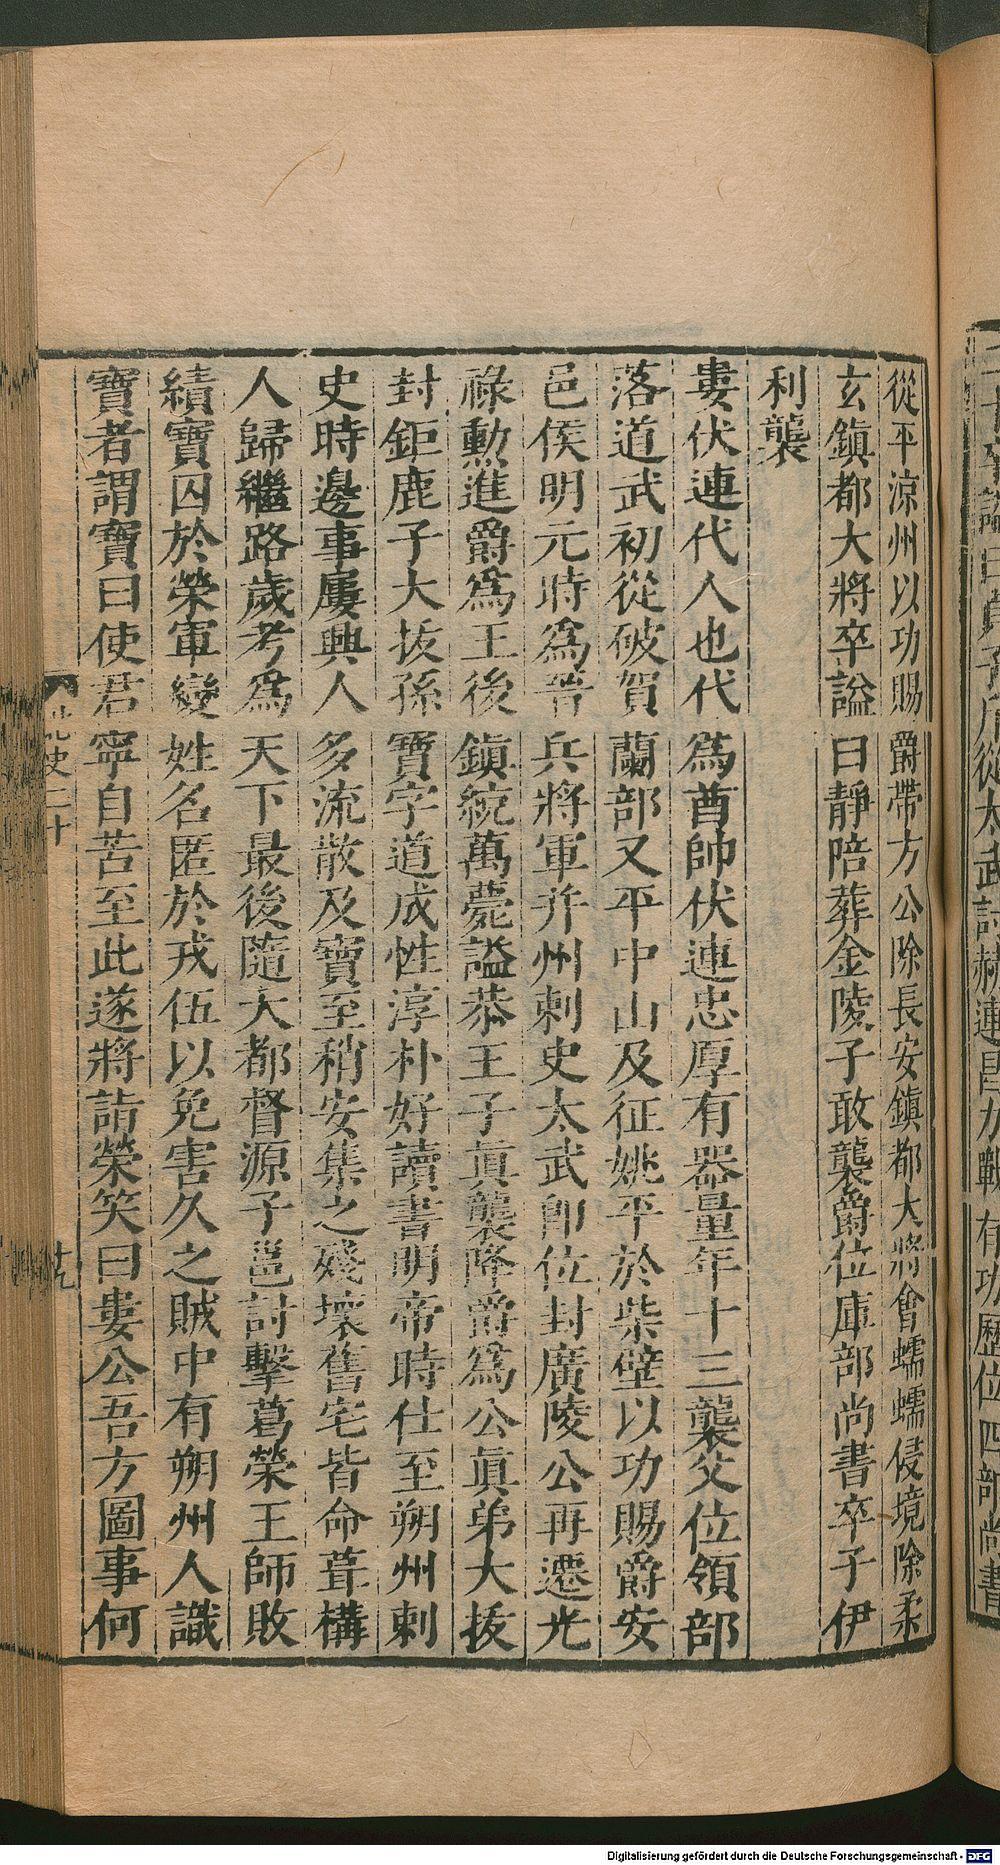 從平涼州以功賜爵帶方公除長安鎮都大將會蠕蠕侵境除柔
玄鎮都大將卒謚曰靜陪葬金陵子敢襲爵位庫部尚書卒子伊
利襲
婁伏連代人也代爲酋帥伏連忠厚有器量年十三襲父位領部
落道武初從破賀蘭部又平中山及征姚平於柴壁以功賜爵安
邑侯明元時爲晉兵將軍并州刺史太武即位封廣陵公再遷光
祿勳進爵爲王後鎮統萬薨謚恭王子眞襲降爵爲公眞弟大拔
封鉅鹿子大拔孫寶字道成性淳朴好讀書明帝時仕至朔州刺
史時邊事屢興人多流散及寶至稍安集之殘壞舊宅皆命葺構
人歸繼路歲考爲天下最後隨大都督源子邕討擊葛榮王師敗
績寶囚於榮軍變姓名匿於戎伍以免害久之賊中有朔州人識
寶者謂寶曰使君寧自苦至此遂將詣榮笑曰婁公吾方圖事何
北史二十
Digitalisierung gefördert durch die Deutsche Forschungsgemeinschaft - DFG